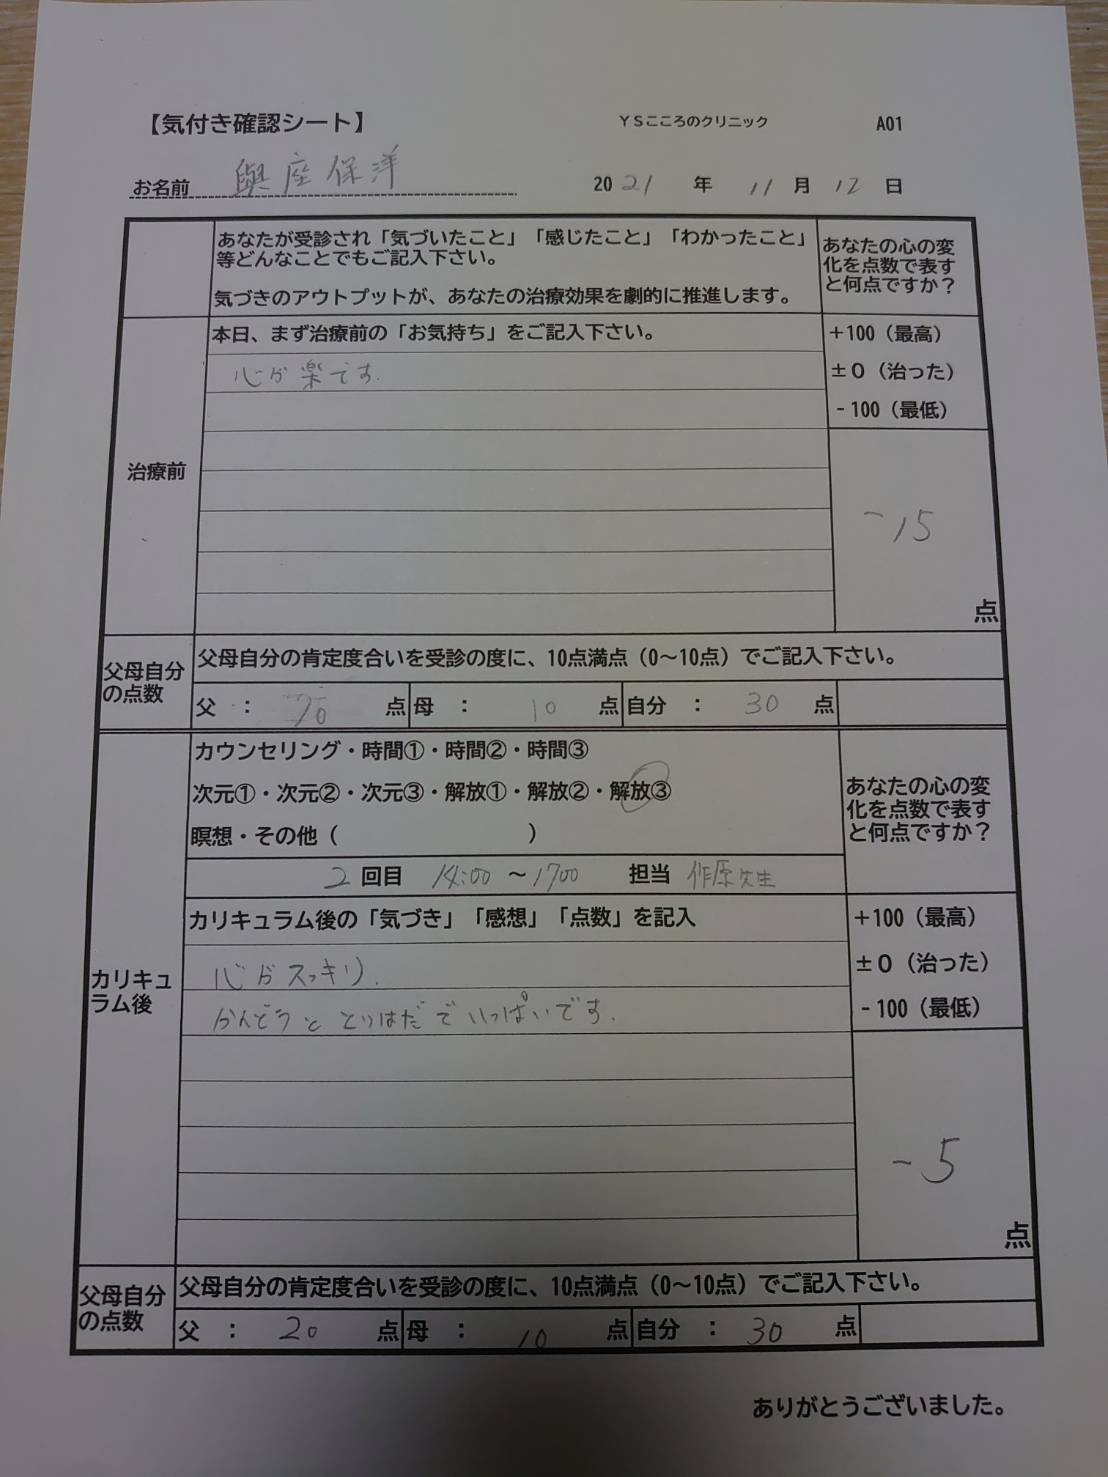 【気付き確認シート】 YSこころのクリニック A01
お名前 與座保洋 2021 年 11 月 12 日
あなたが受診され「気づいたこと」「感じたこと」「わかったこと」
等どんなことでもご記入下さい。
気づきのアウトプットが、あなたの治療効果を劇的に推進します。
あなたの心の変
化を点数で表す
と何点ですか？
治療前
本日、まず治療前の「お気持ち」をご記入下さい。
心が楽です.
+100（最高）
±0（治った）
-100（最低）
-15
点
父母自分
の点数
父母自分の肯定度合いを受診の度に、10点満点（0～10点）でご記入下さい。
父 ： 点 母 ： 10 点 自分 ： 30 点
カリキュ
ラム後
カウンセリング・時間①・時間②・時間③
次元①・次元②・次元③・解放①・解放②・解放③
瞑想・その他（ ）
2 回目 14:00 ～1700 担当 作原先生
あなたの心の変
化を点数で表す
と何点ですか？
カリキュラム後の「気づき」「感想」「点数」を記入
心がスッキリ.
かんどうととりはだでいっぱいです.
+100（最高）
±0（治った）
-100（最低）
-5
点
父母自分
の点数
父母自分の肯定度合いを受診の度に、10点満点（0～10点）でご記入下さい。
父 ： 20 点 母 ： 10 点 自分 ： 30 点
ありがとうございました。